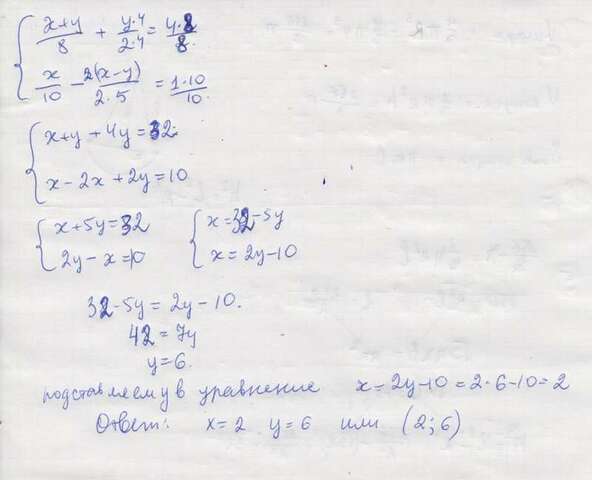 (x+y)/8 + (y·4)/(2·4) = (4·8)/8.
x/10 - 2(x-y)/(2·5) = (1·10)/10.
x+y+4y=32
x-2x+2y=10
x+5y=32 x=32-5y
2y-x=10 x=2y-10
32-5y=2y-10.
42=7y
y=6.
подставляем y в уравнение x=2y-10=2·6-10=2
Ответ: x=2 y=6 или (2;6)